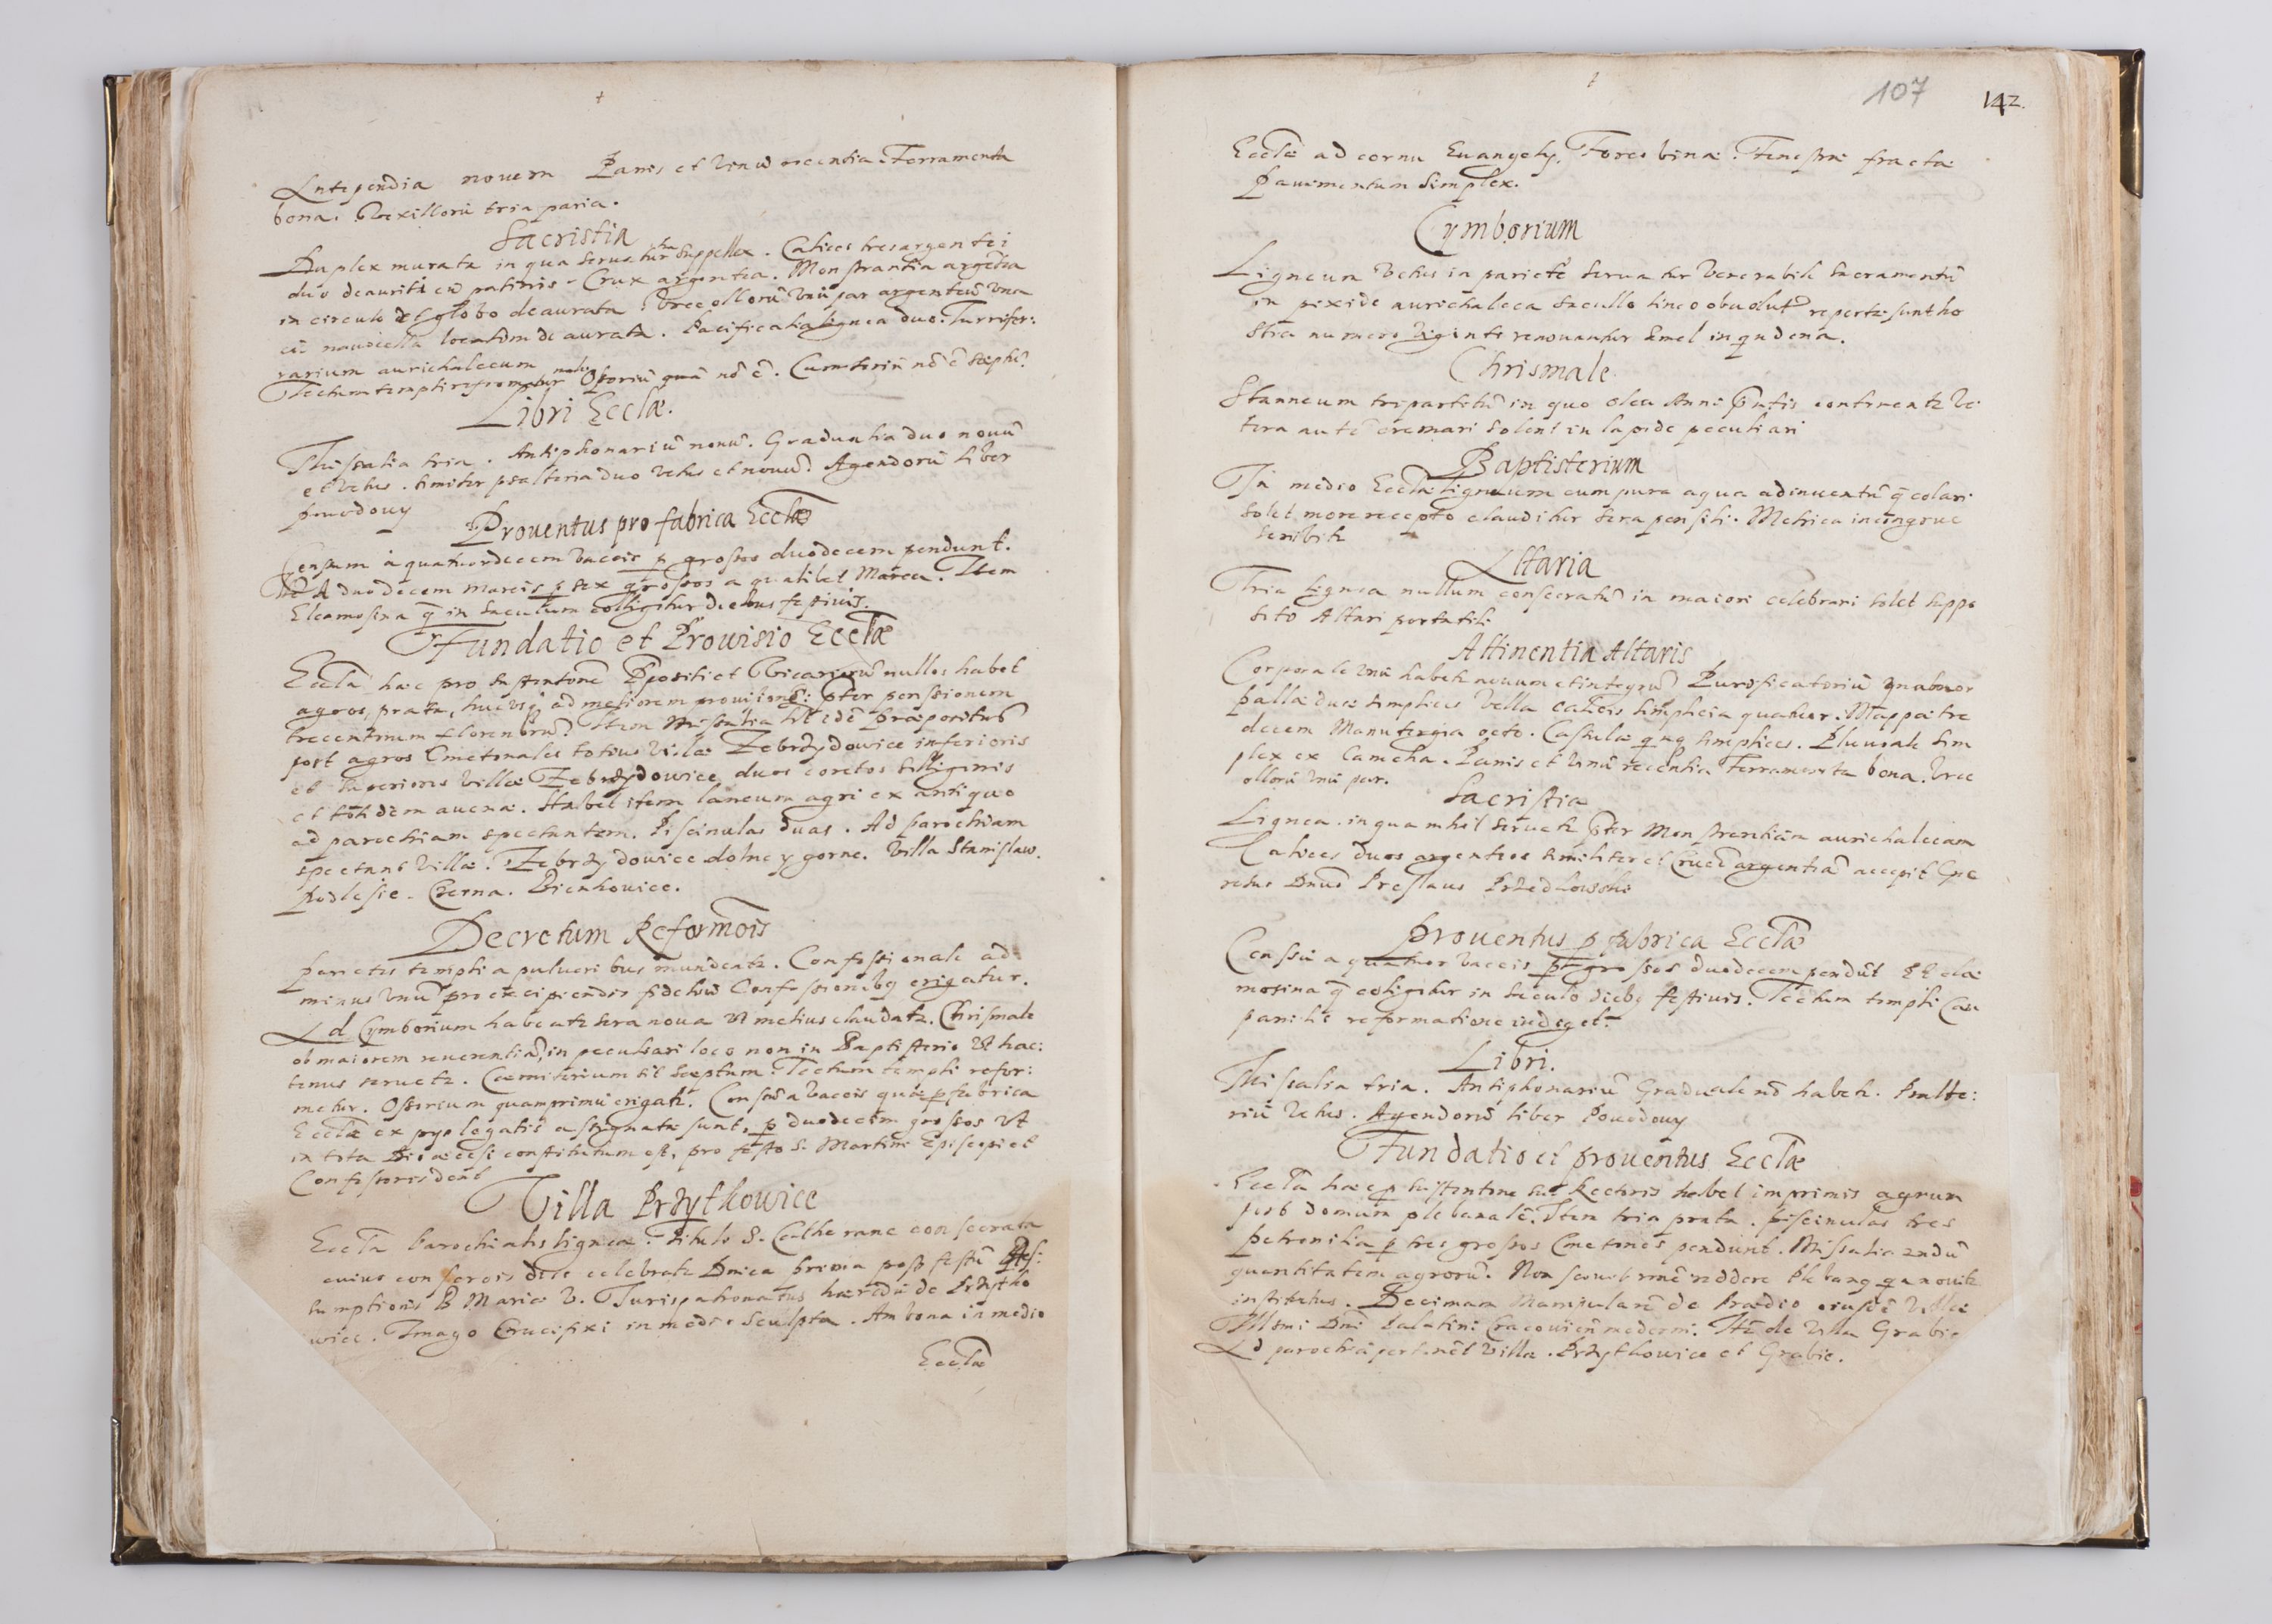 Antependia novem Panis et vinũ recentia. Ferramenta
bona. Vexillorũ tria paria.
Sacristia
Duplex murata in qua servatur Suppellex. Calices tres argentei
duo deaurati cũ patinis. Crux argentea. Monstrantia argẽtea
in circulo et globo deaurata. Vrceollorũ vnũ par argenteũ vna
cũ navicella deaurata. Pacificalia lignea duo. Turrifer:
rarium aurichalceum
Tectum templi reformatur Osoriũ quia nõ ẽ. Cimiteriũ nõ ẽ sæptũ
Libri Ecclæ.
Missalia tria. Antiphonariũ novũ. Gradualia duo novũ
et vetus. similiter psalteria duo vetus et novũ. Agendorũ liber
povodovy
Proventus pro fabrica Ecclæ
Censum à quatuordecem vaccis p grossos duodecem pendunt.
A duodecem marcis p sex grossos a qualibet Marca. Item
Eleamosina q̃ in saculum colligitur diebus festivis.
Fundatio et Prowisio Ecclæ
Eccla hæc pro sustentone Ppositi et Vicariorũ nullos habet
agros, prata, hucusq; ad meliorem provisionẽ: pter penssionem
trecentorum florenorũ. Item Missalia hic idẽ præpositus
post agros Cmetonales totius villæ Zebrzydowice inferioris
et superioris villæ Zebrzydowice duos coretos silliginis
et totidem avenæ. Habet item laneum agri ex antiquo
ad parochiam spectantem. Piscinulas duas. Ad parochiam
spectant villæ. Zebrzydowice dolne y gorne. Villa Stanislaw.
Podlesie. Czerna. Bienkowice.
Decretum Reformõis
Parietes templi a pulveribus mundentr. Confessionale ad
minus vnũ pro excipiendis fidelium Confessionibq erigatur.
Ad Cymborium habeatr sera nova vt melius claudatr. Chrismale
ob maiorem reverentiã, in peculiari loco non in Baptisterio vt hac:
tenus servetr. Cæmiterium sit sæptum. Tectum templi refor:
metur. Ossorium quamprimũ erigatr. Censũs a vaccis quæ p fabrica
Ecclæ ex pys legatis assignatæ sunt, p duodecim grossos vt
in tota Diœcesi constitutum est, pro festo S. Martini Episcopi et
Confessoris dent
Villa Przytkowice
Eccla Parochialis lignea. Titulo S. Catheranæ consecrata
cuius consecrõis dies celebratr Dnica prima post festũ Assũ:
sumptionis B Mariæ V. Jurispatronatus hæredũ de Przytko
wice. Imago Crucifixi in medio sculpta. Ambona in medio
Ecclæ
107
142.
Ecclæ ad cornu Evangely. Fores binæ. Fenestræ fractæ
Pavimentum Simplex.
Cymborium
Ligneum vetus in pariete servatur venerabile sacramentũ
in pixide aurichalcea sacullo lineo obvolut repertæ sunt ho
stiæ numero viginti renovantur semel in qndena.
Chrismale
Stanneum tripartitũ in quo olea Anni pñtis continentr ve
tera autẽ cremari solent in lapide peculiari
Baptisterium
In medio Ecclæ ligneum cum pura aqua adinventũ q̃ colari
solet more recepto clauditur sera pensili. Metrica incongrue
scribitr
Altaria
Tria lignea nullum consecratũ in maiori celebrari solet suppo
sito Altari portatili
Attinentia Altaris
Corporale vnũ habetr novum et integrũ Purificatoriũ
Pallæ duæ simplices Vella calicis simplicia quatuor. Mappæ tre
decem Manutergia octo. Casulæ qnq simplices. Pluviale sim
plex ex Camcha. Panis et vinũ recentia Ferramenta bona. Vrce
ollorũ vnũ par.
Sacristia
Lignea. in qua nihil servatr pter Monstrantiam aurichalceam
Calices duos argenteos similiter et Crucẽ argentẽa accepit Ge
rosus Dnus Preslaus Przedkowski
Proventus p fabrica Ecclæ
Censũ a quatuor vaccis p grossos duodecem pendũt Elea
mosina q̃ coligitur in saculo diebq festivis. Tectum templi Cam
panile reformatione indiget.
Libri.
Missalia tria. Antiphonariũ Graduale nõ habetr. Psalte:
riũ vetus. Agendorũ liber Povodovy
Fundatio et proventus Ecclæ
Eccla hæc p sustentone sui Rectoris habet imprimis agrum
post domum plebanalẽ. Item tria prata. piscinulas tres
Petronilia p tres grossos Cmetones pendunt. Missalia
quantitatem agrorũ. Non reddere Plebanq
institutus. Decimam Manipularẽ de Prædio eiusdẽ villæ
Illmi Dni Palatini Cracovieñ moderni. Itẽ de villa Grabie
Ad parochiã pertinẽt villæ. Przytkowice et Grabie.